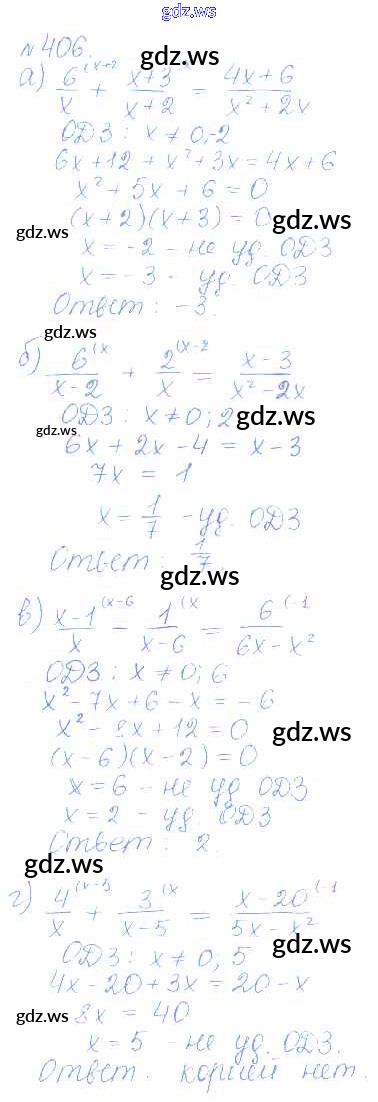 gdz.ws
№406.
gdz.ws
а) 6^(x+2 / x + x+3^(x / x+2 = 4x+6 / x² + 2x
ОДЗ: x ≠ 0, -2
6x+12 + x²+3x = 4x+6
x² + 5x + 6 = 0
(x+2)(x+3) = 0 gdz.ws
gdz.ws x = -2 - не уд. ОДЗ
x = -3 - уд. ОДЗ
Ответ: -3.
gdz.ws
б) 6^(x / x-2 + 2^(x-2 / x = x-3 / x² - 2x
ОДЗ: x ≠ 0; 2 gdz.ws
gdz.ws
6x + 2x - 4 = x - 3
7x = 1
x = 1/7 - уд. ОДЗ
Ответ: 1/7.
gdz.ws
в) x-1^(x-6 / x - 1^(x / x-6 = 6^(-1 / 6x - x²
ОДЗ: x ≠ 0; 6
x² - 7x + 6 - x = -6
x² - 8x + 12 = 0 gdz.ws
(x-6)(x-2) = 0
x = 6 - не уд ОДЗ
x = 2 - уд. ОДЗ
Ответ: 2.
gdz.ws
г) 4^(x-5 / x + 3^(x / x-5 = x-20^(-1 / 5x - x²
gdz.ws
ОДЗ: x ≠ 0, 5
4x - 20 + 3x = 20 - x
gdz.ws 8x = 40 gdz.ws
x = 5 - не уд. ОДЗ.
Ответ. корней нет.